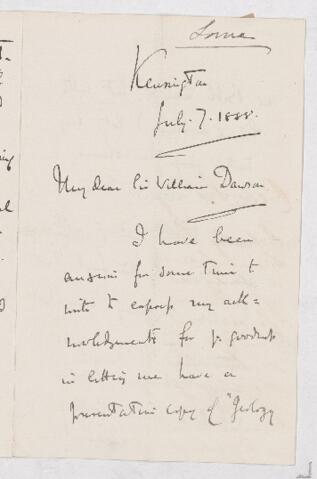 Lorne
Kensington
July. 7. 1888.
My dear Sir William Dawson
I have been
anxious for some time to
write to express my ack=
nowledgments for yr goodness
in letting me have a
presentation copy of "Geology